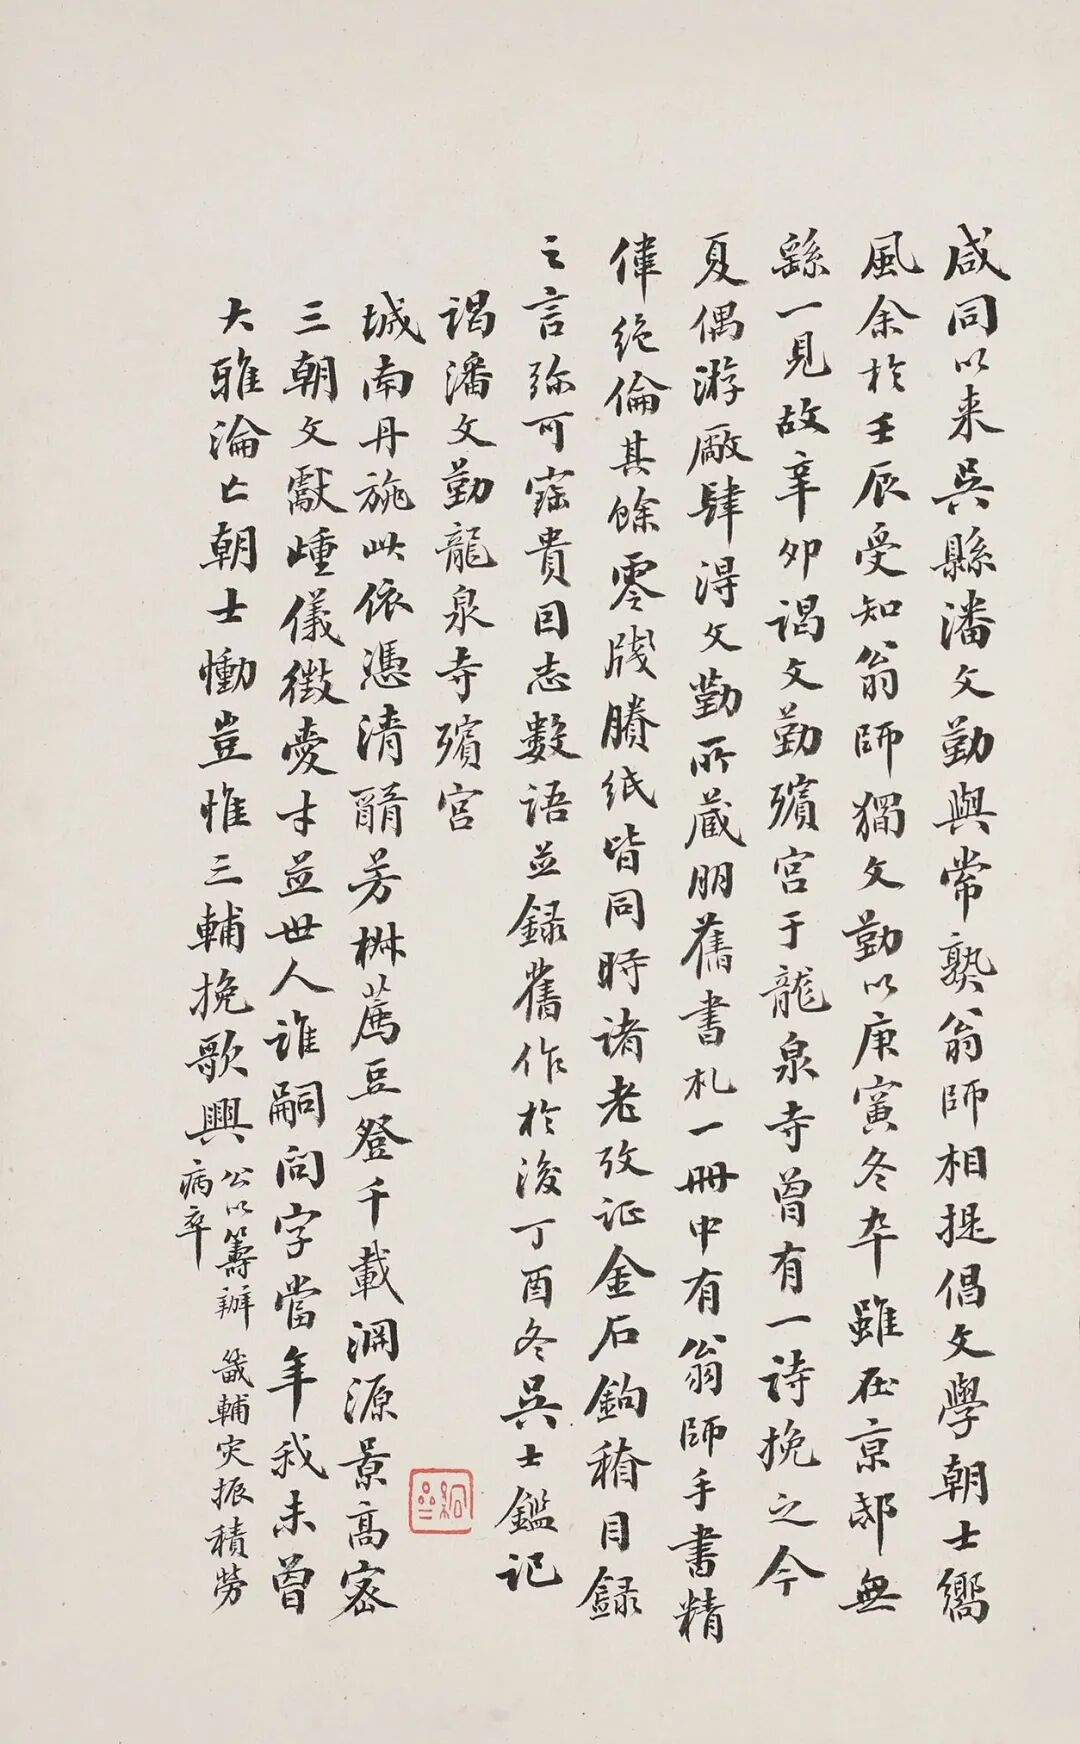 咸同以来吳縣潘文勤與常熟翁師相提倡文學朝士嚮
風余於壬辰受知翁師獨文勤以庚寅冬卒雖在京邸無
繇一見故辛卯謁文勤殯宮于龍泉寺曾有一詩挽之今
夏偶游廠肆淂文勤所蔵朋舊書札一冊中有翁師手書精
偉絶倫其餘零牋賸紙皆同時诸老攷证金石鉤稽目録
之言弥可寳貴因志數語並録舊作於後丁酉冬吳士鑑记
謁潘文勤龍泉寺殯宮
城南丹旐此依憑清醑芳椒薦豆登千載淵源景高密
三朝文獻重儀徵愛才並世人谁嗣问字當年我未曾
大雅淪亡朝士慟豈惟三輔挽歌興
公以籌辦畿輔灾振積勞
病卒